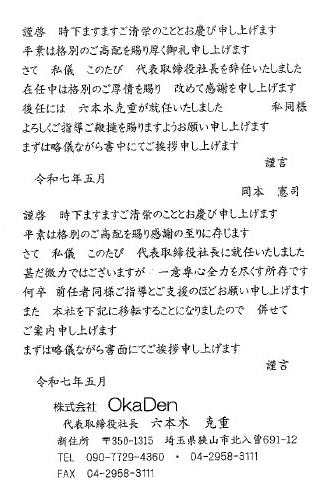 謹啓　時下ますますご清栄のこととお慶び申し上げます
平素は格別のご高配を賜り厚く御礼申し上げます
さて　私儀　このたび　代表取締役社長を辞任いたしました
在任中は格別のご厚情を賜り　改めて感謝を申し上げます
後任には　六本木克重が就任いたしました　　　私同様
よろしくご指導ご鞭撻を賜りますようお願い申し上げます
まずは略儀ながら書中にてご挨拶申し上げます
謹言
令和七年五月
岡本　憲司
謹啓　時下ますますご清栄のこととお慶び申し上げます
平素は格別のご高配を賜り感謝の至りに存じます
さて　私儀　このたび　代表取締役社長に就任いたしました
甚だ微力ではございますが　一意専心全力を尽くす所存です
何卒　前任者同様ご指導とご支援のほどお願い申し上げます
また　本社を下記に移転することになりましたので　併せて
ご案内申し上げます
まずは略儀ながら書面にてご挨拶申し上げます
謹言
令和七年五月
株式会社　OkaDen
代表取締役社長　六本木　克重
新住所　〒350-1315　埼玉県狭山市北入曽691-12
TEL　090-7729-4360 ・ 04-2958-3111
FAX　04-2958-3111